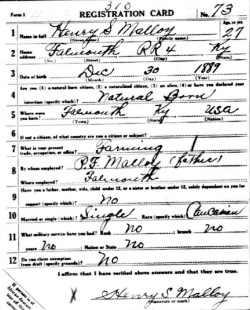 Form 1 310 No. 73
REGISTRATION CARD
1 Name in full Henry S Malloy Age, in yrs. 27
(Given name) (Family name)
2 Home address Falmouth RR 4 Ky
3 Date of birth Dec 30 1889
(Month) (Day) (Year)
4 Are you (1) a natural-born citizen, (2) a naturalized citizen, (3) an alien, (4) or have you declared your
intention (specify which)? Natural Born
5 Where were you born? Falmouth Ky USA
(Town) (State) (Nation)
6 If not a citizen, of what country are you a citizen or subject?
7 What is your present trade, occupation, or office? Farming
8 By whom employed? P.F. Malloy (father)
Where employed? Falmouth
9 Have you a father, mother, wife, child under 12, or a sister or brother under 12, solely dependent on you for
support (specify which)? No
10 Married or single (which)? Single Race (specify which)? Caucasian
11 What military service have you had? Rank No branch No
years No Nation or State No
12 Do you claim exemption from draft (specify grounds)? No
I affirm that I have verified above answers and that they are true.
X Henry S Malloy
(Signature or mark)